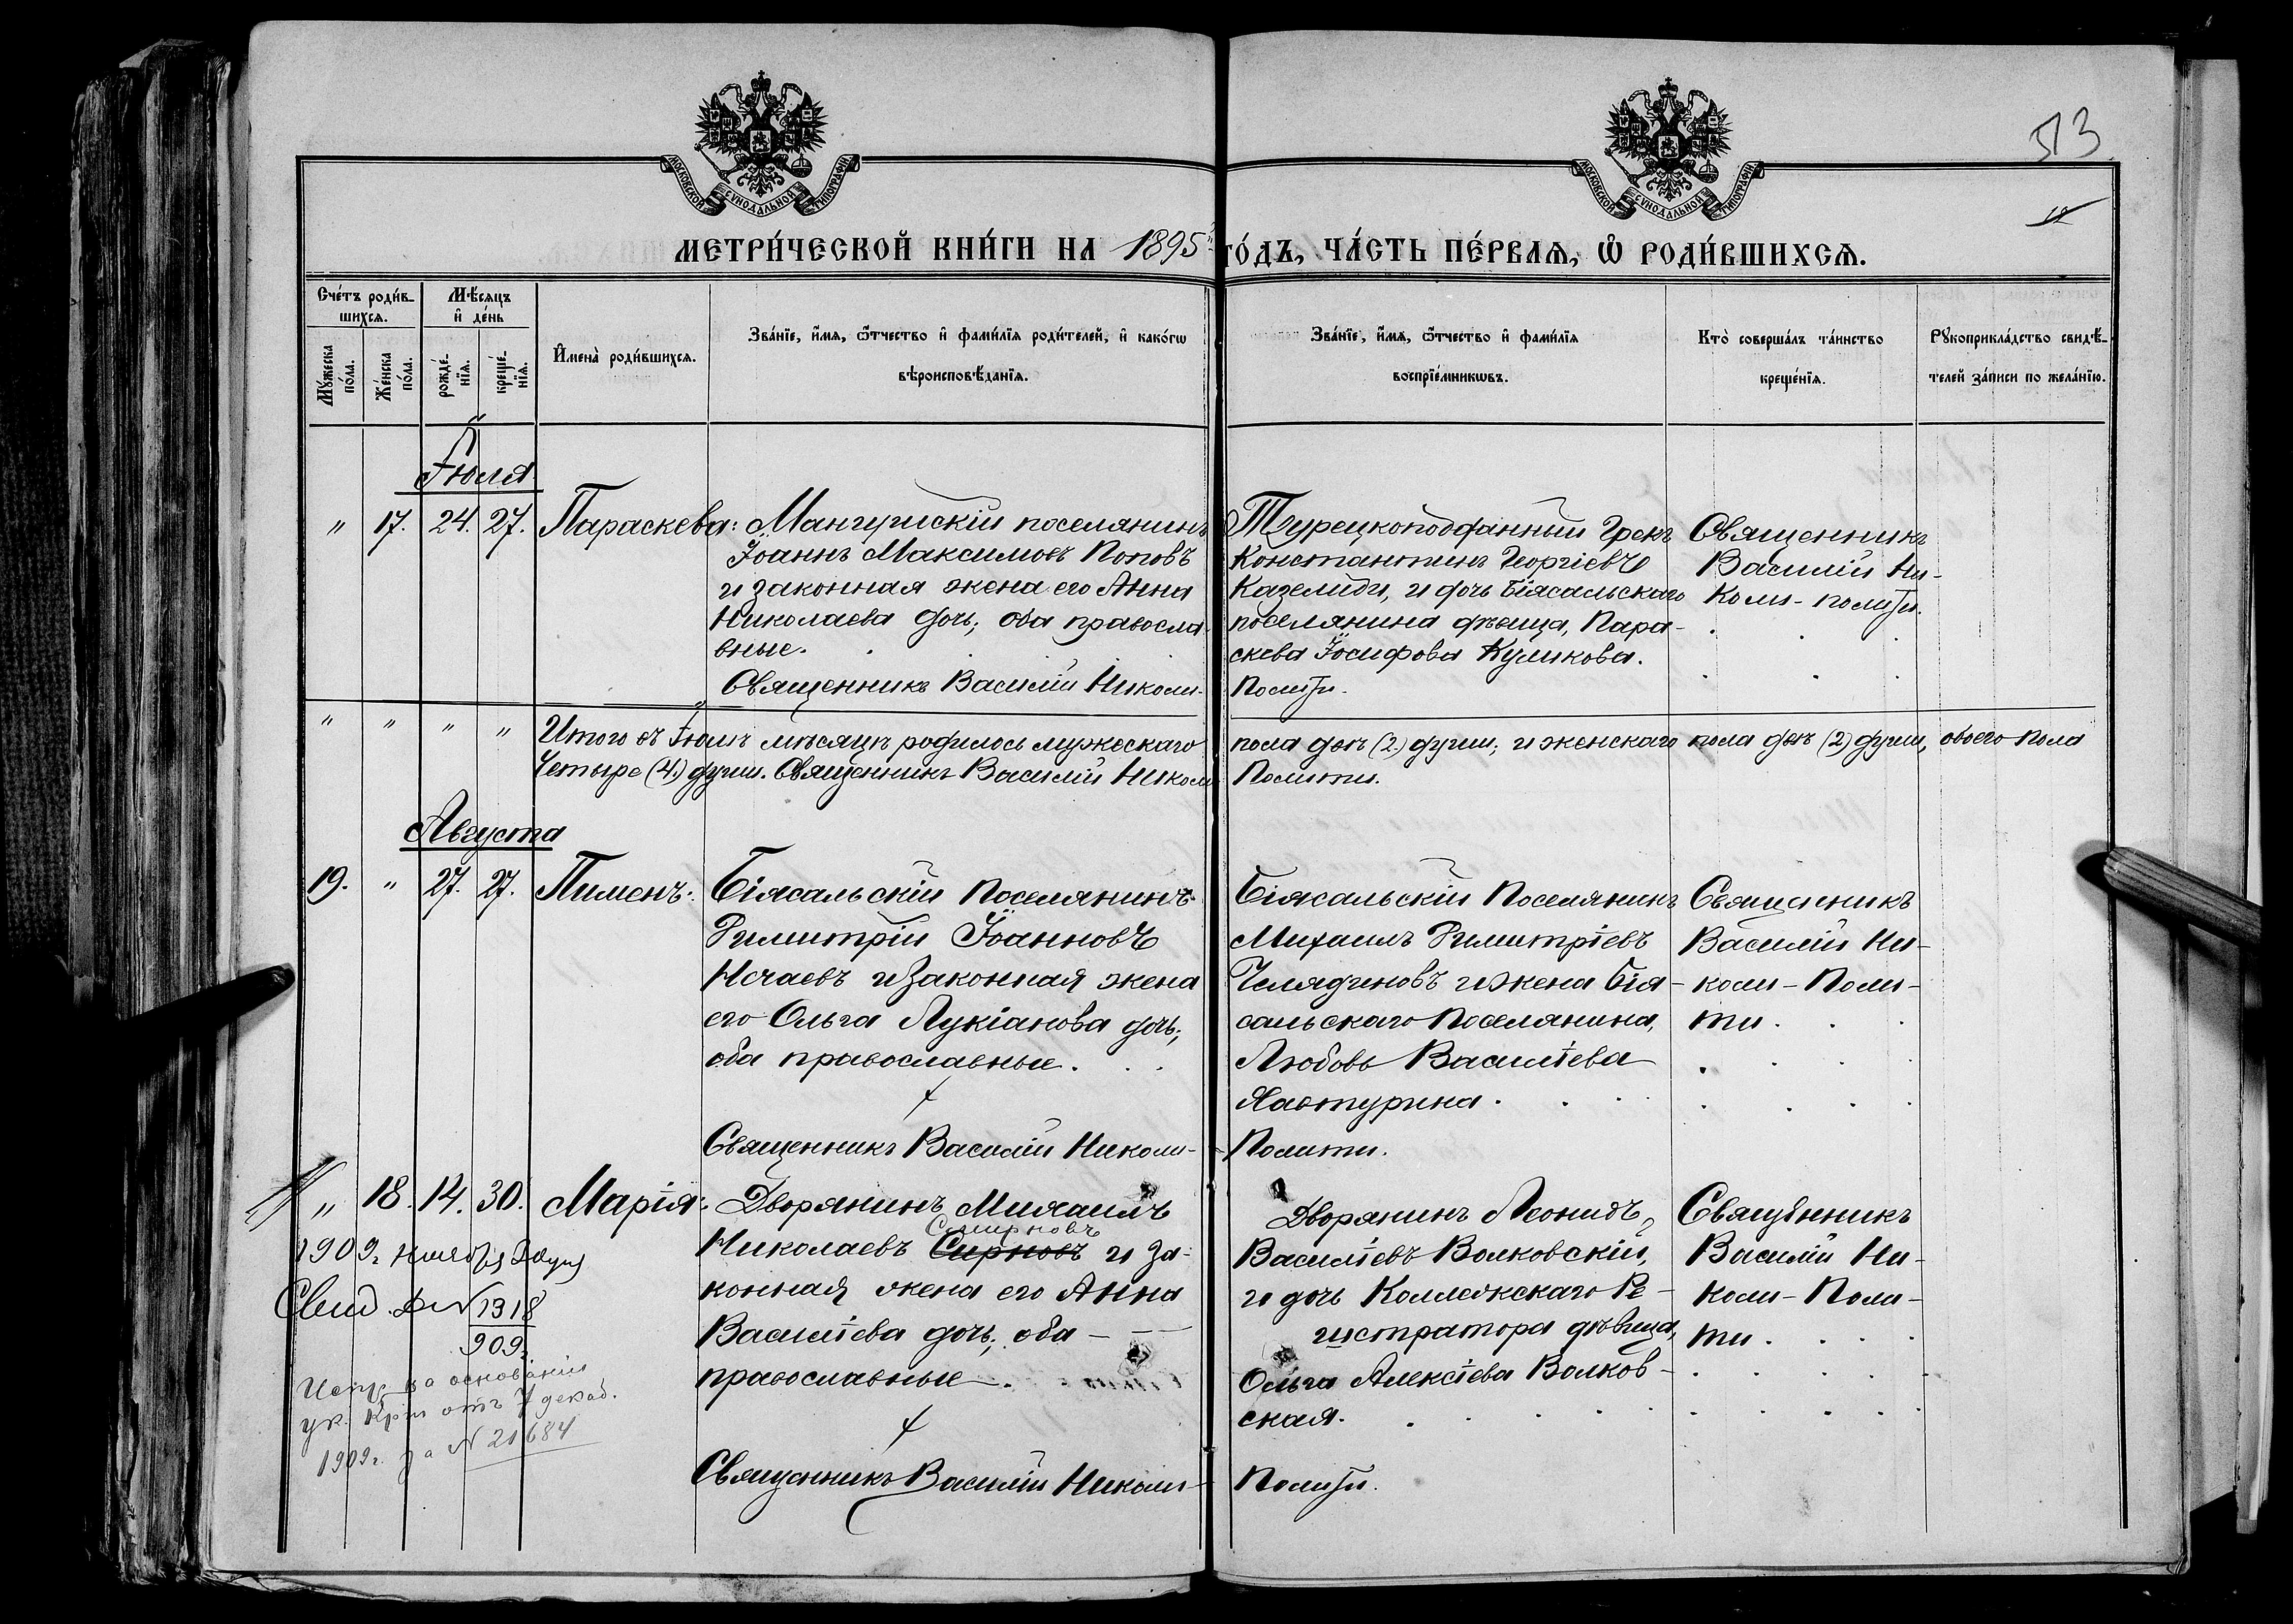 МОСКОВСКОЙ СѴНОДАЛЬНОЙ ТИПОГРАФІИ
МОСКОВСКОЙ СѴНОДАЛЬНОЙ ТИПОГРАФІИ
513
МЕТРИ́ЧЕСКОЙ КНИ́ГИ НА 1895 ГО́ДЪ, ЧА́СТЬ ПЕ́РВАѦ, Ѡ҆ РОДИ́ВШИХСѦ.
Сче́тъ роди́в-
шихсѧ.
Мꙋ́жеска
по́ла.
Же́нска
по́ла.
Мѣ́сѧцъ
и҆ де́нь
рожде́-
нїѧ.
креще́-
нїѧ.
И҆мена̀ роди́вшихсѧ.
Зва́нїе, и҆́мѧ, ѻ҆́тчество и҆ фами́лїѧ роди́телей, и҆ како́гѡ
вѣроисповѣ́данїѧ.
Зва́нїе, и҆́мѧ, ѻ҆́тчество и҆ фами́лїѧ
воспрїе́мникѡвъ.
Кто̀ соверша́лъ та́инство
креще́нїѧ.
Рꙋкоприкла́дство свидѣ́-
телей за́писи по жела́нїю.
Іюля
" 17. 24. 27. Параскева:
Мангушскій поселянинъ
Іоаннъ Максимовъ Поповъ
и законная жена его Анна
Николаева дочь; оба правосла-
вные.
Священникъ Василій Николи-
Турецкоподданный Грекъ
Константинъ Георгіевъ
Казелиди, и дочь Біясальскаго
поселянина дѣвица, Пара-
скева Іосифова Куликова.
Полити.
Священникъ
Василій Ни-
коли-полити.
" " " " Итого въ Іюлѣ мѣсяцѣ родилось мужескаго пола двѣ (2.) души; и женскаго пола двѣ (2) души, обоего пола
Четыре (4.) души. Священникъ Василій Николи Полити.
Августа
19. " 27. 27. Пименъ:
Біясальскій Поселянинъ
Димитрій Іоанновъ
Исчаевъ и Законная жена
его Ольга Лукіанова дочь;
оба православные.
Священникъ Василій Николи-
Біясальскій Поселянинъ
Михаилъ Димитріевъ
Челядиновъ и жена Бія-
сальскаго Поселянина,
Любовь Василіева
Хавтурина.
Полити.
Священникъ
Василій Ни-
коли-Поли-
ти.
" 18. 14. 30. Марія:
Дворянинъ Михаилъ
Смирновъ
Николаевъ Сирновъ и за-
конная жена его Анна
Василіева дочь; оба -
православные.
Священникъ Василій Николи-
Дворянинъ Леонидъ
Василіевъ Волковскій,
и дочь Коллежскаго Ре-
гистратора дѣвица,
Ольга Алексіева Волков-
ская.
Полити.
Священникъ
Василій Ни-
коли-Поли-
ти.
1909г. ноября
Свид. № 1318
909г.
Испр. на основаніи
ук. Крым отъ 7 декаб.
1909г. за № 21684